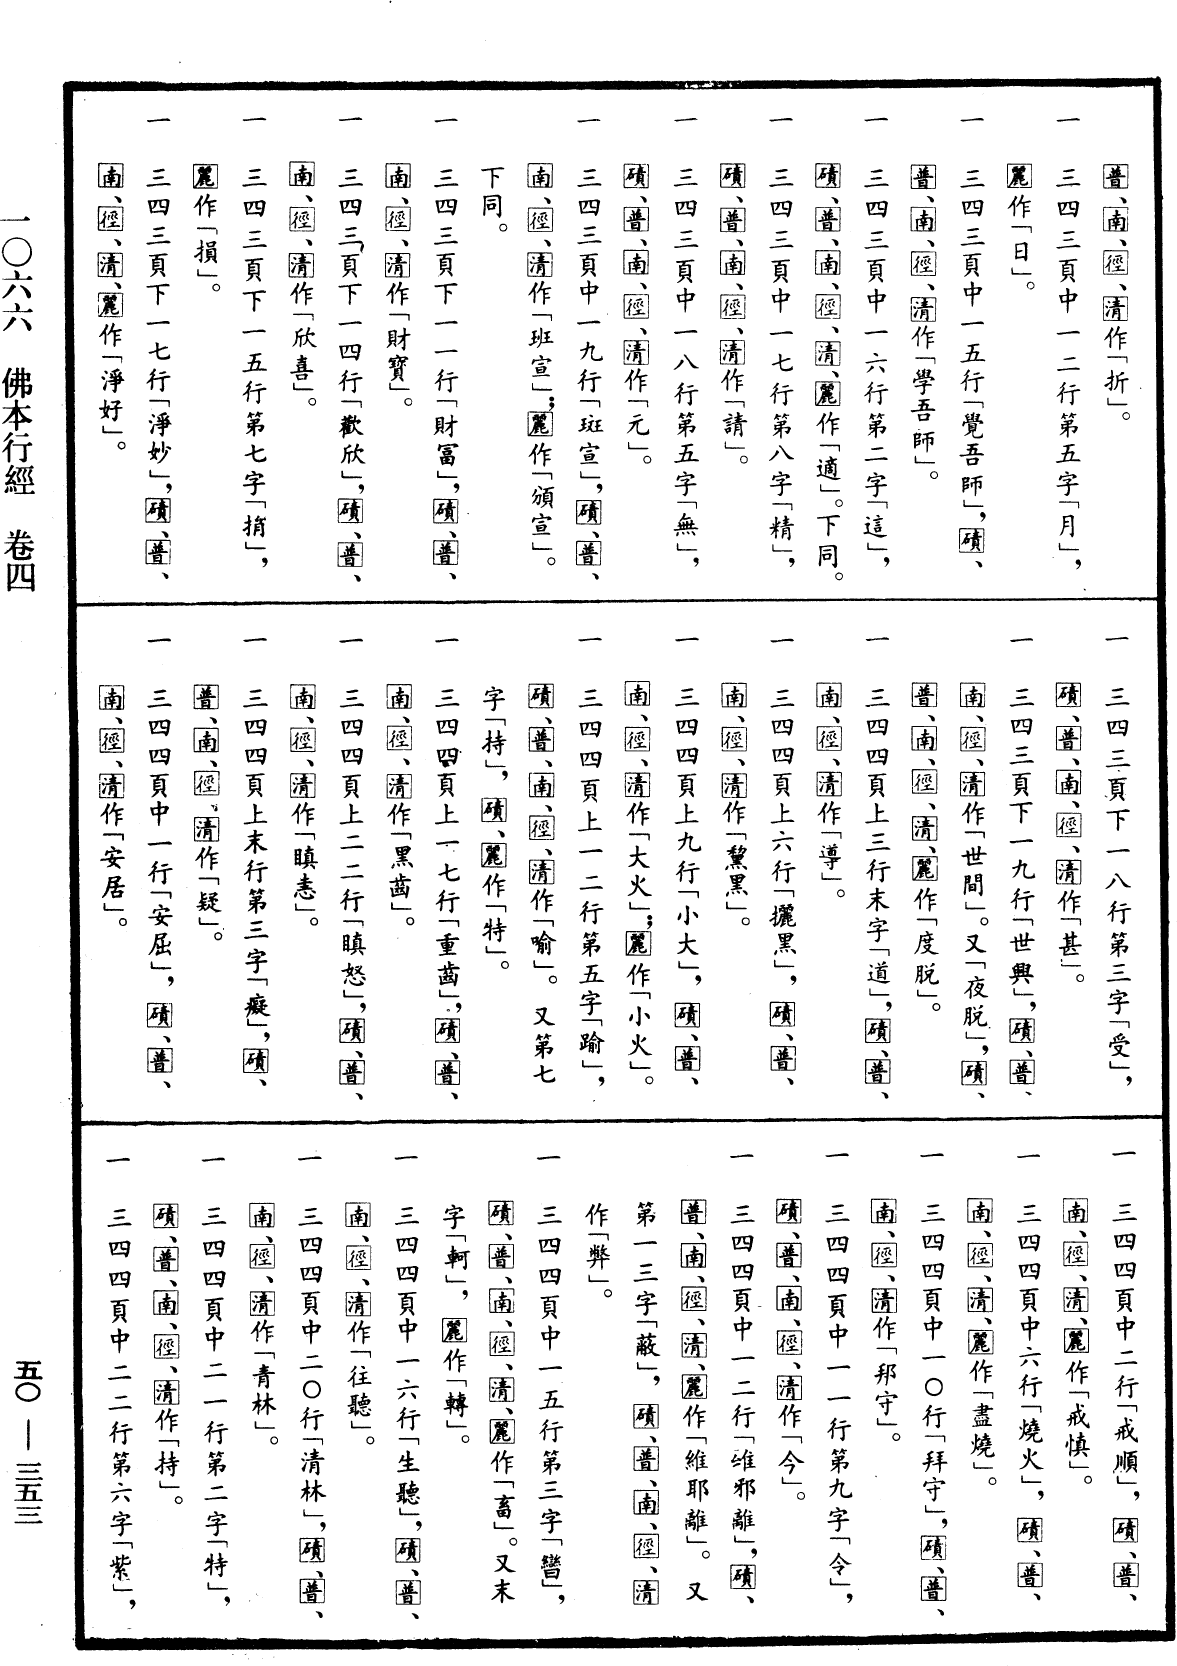 普、南、徑、清作「折」。
一 三四三頁中一二行第五字「月」，
麗作「日」。
一 三四三頁中一五行「覺吾師」，磧、
普、南、徑、清作「學吾師」。
一 三四三頁中一六行第二字「這」，
磧、普、南、徑、清、麗作「適」。下同。
一 三四三頁中一七行第八字「精」，
磧、普、南、徑、清作「請」。
一 三四三頁中一八行第五字「無」，
磧、普、南、徑、清作「元」。
一 三四三頁中一九行「斑宣」，磧、普、
南、徑、清作「班宣」；麗作「頒宣」。
下同。
一 三四三頁下一一行「財富」，磧、普、
南、徑、清作「財寶」。
一 三四三頁下一四行「歡欣」，磧、普、
南、徑、清作「欣喜」。
一 三四三頁下一五行第七字「捐」，
麗作「損」。
一 三四三頁下一七行「淨妙」，磧、普、
南、徑、清、麗作「淨好」。
一 三四三頁下一八行第三字「受」，
磧、普、南、徑、清作「甚」。
一 三四三頁下一九行「世興」，磧、普、
南、徑、清作「世間」。又「夜脫」，磧、
普、南、徑、清、麗作「度脫」。
一 三四四頁上三行末字「道」，磧、普、
南、徑、清作「導」。
一 三四四頁上六行「攦黑」，磧、普、
南、徑、清作「黧黑」。
一 三四四頁上九行「小大」，磧、普、
南、徑、清作「大火」；麗作「小火」。
一 三四四頁上一二行第五字「踰」，
磧、普、南、徑、清作「喻」。又第七
字「持」，磧、麗作「特」。
一 三四四頁上一七行「重齒」，磧、普、
南、徑、清作「黑齒」。
一 三四四頁上二二行「瞋怒」，磧、普、
南、徑、清作「瞋恚」。
一 三四四頁上末行第三字「癡」，磧、
普、南、徑、清作「疑」。
一 三四四頁中一行「安屈」，磧、普、
南、徑、清作「安居」。
一 三四四頁中二行「戒順」，磧、普、
南、徑、清、麗作「戒慎」。
一 三四四頁中六行「燒火」，磧、普、
南、徑、清、麗作「盡燒」。
一 三四四頁中一〇行「拜守」，磧、普、
南、徑、清作「邦守」。
一 三四四頁中一一行第九字「令」，
磧、普、南、徑、清作「今」。
一 三四四頁中一二行「維邪離」，磧、
普、南、徑、清、麗作「維耶離」。又
第一三字「蔽」，磧、普、南、徑、清
作「弊」。
一 三四四頁中一五行第三字「轡」，
磧、普、南、徑、清、麗作「畜」。又末
字「軻」，麗作「轉」。
一 三四四頁中一六行「生聽」，磧、普、
南、徑、清作「往聽」。
一 三四四頁中二〇行「清林」，磧、普、
南、徑、清作「青林」。
一 三四四頁中二一行第二字「特」，
磧、普、南、徑、清作「持」。
一 三四四頁中二二行第六字「紫」，
一〇六六 佛本行經 卷四
五〇—三五三